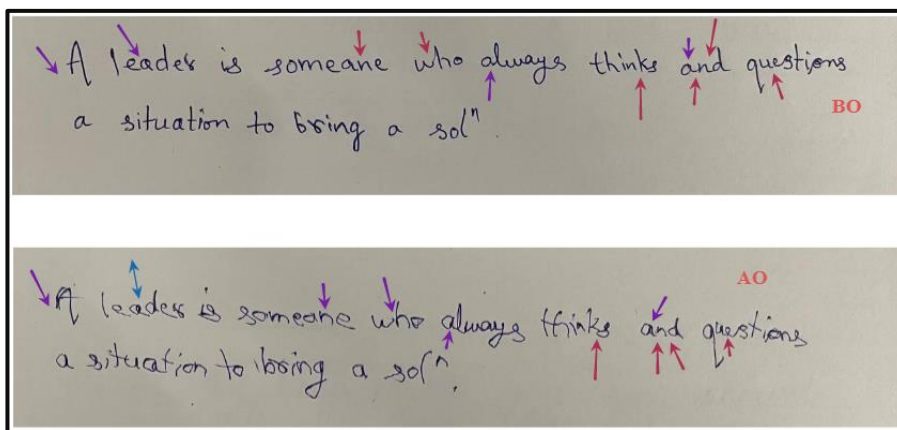 A leader is someane who always thinks and questions
a situation to bring a solⁿ.
BO
AO
A leader is someane who always thinks and questions
a situation to bring a solⁿ.